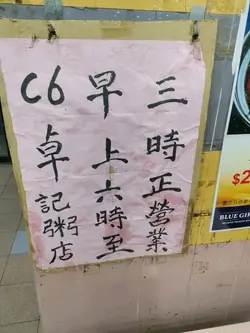 C6卓記粥店
早上六時至
三時正營業
$2
BLUE GI